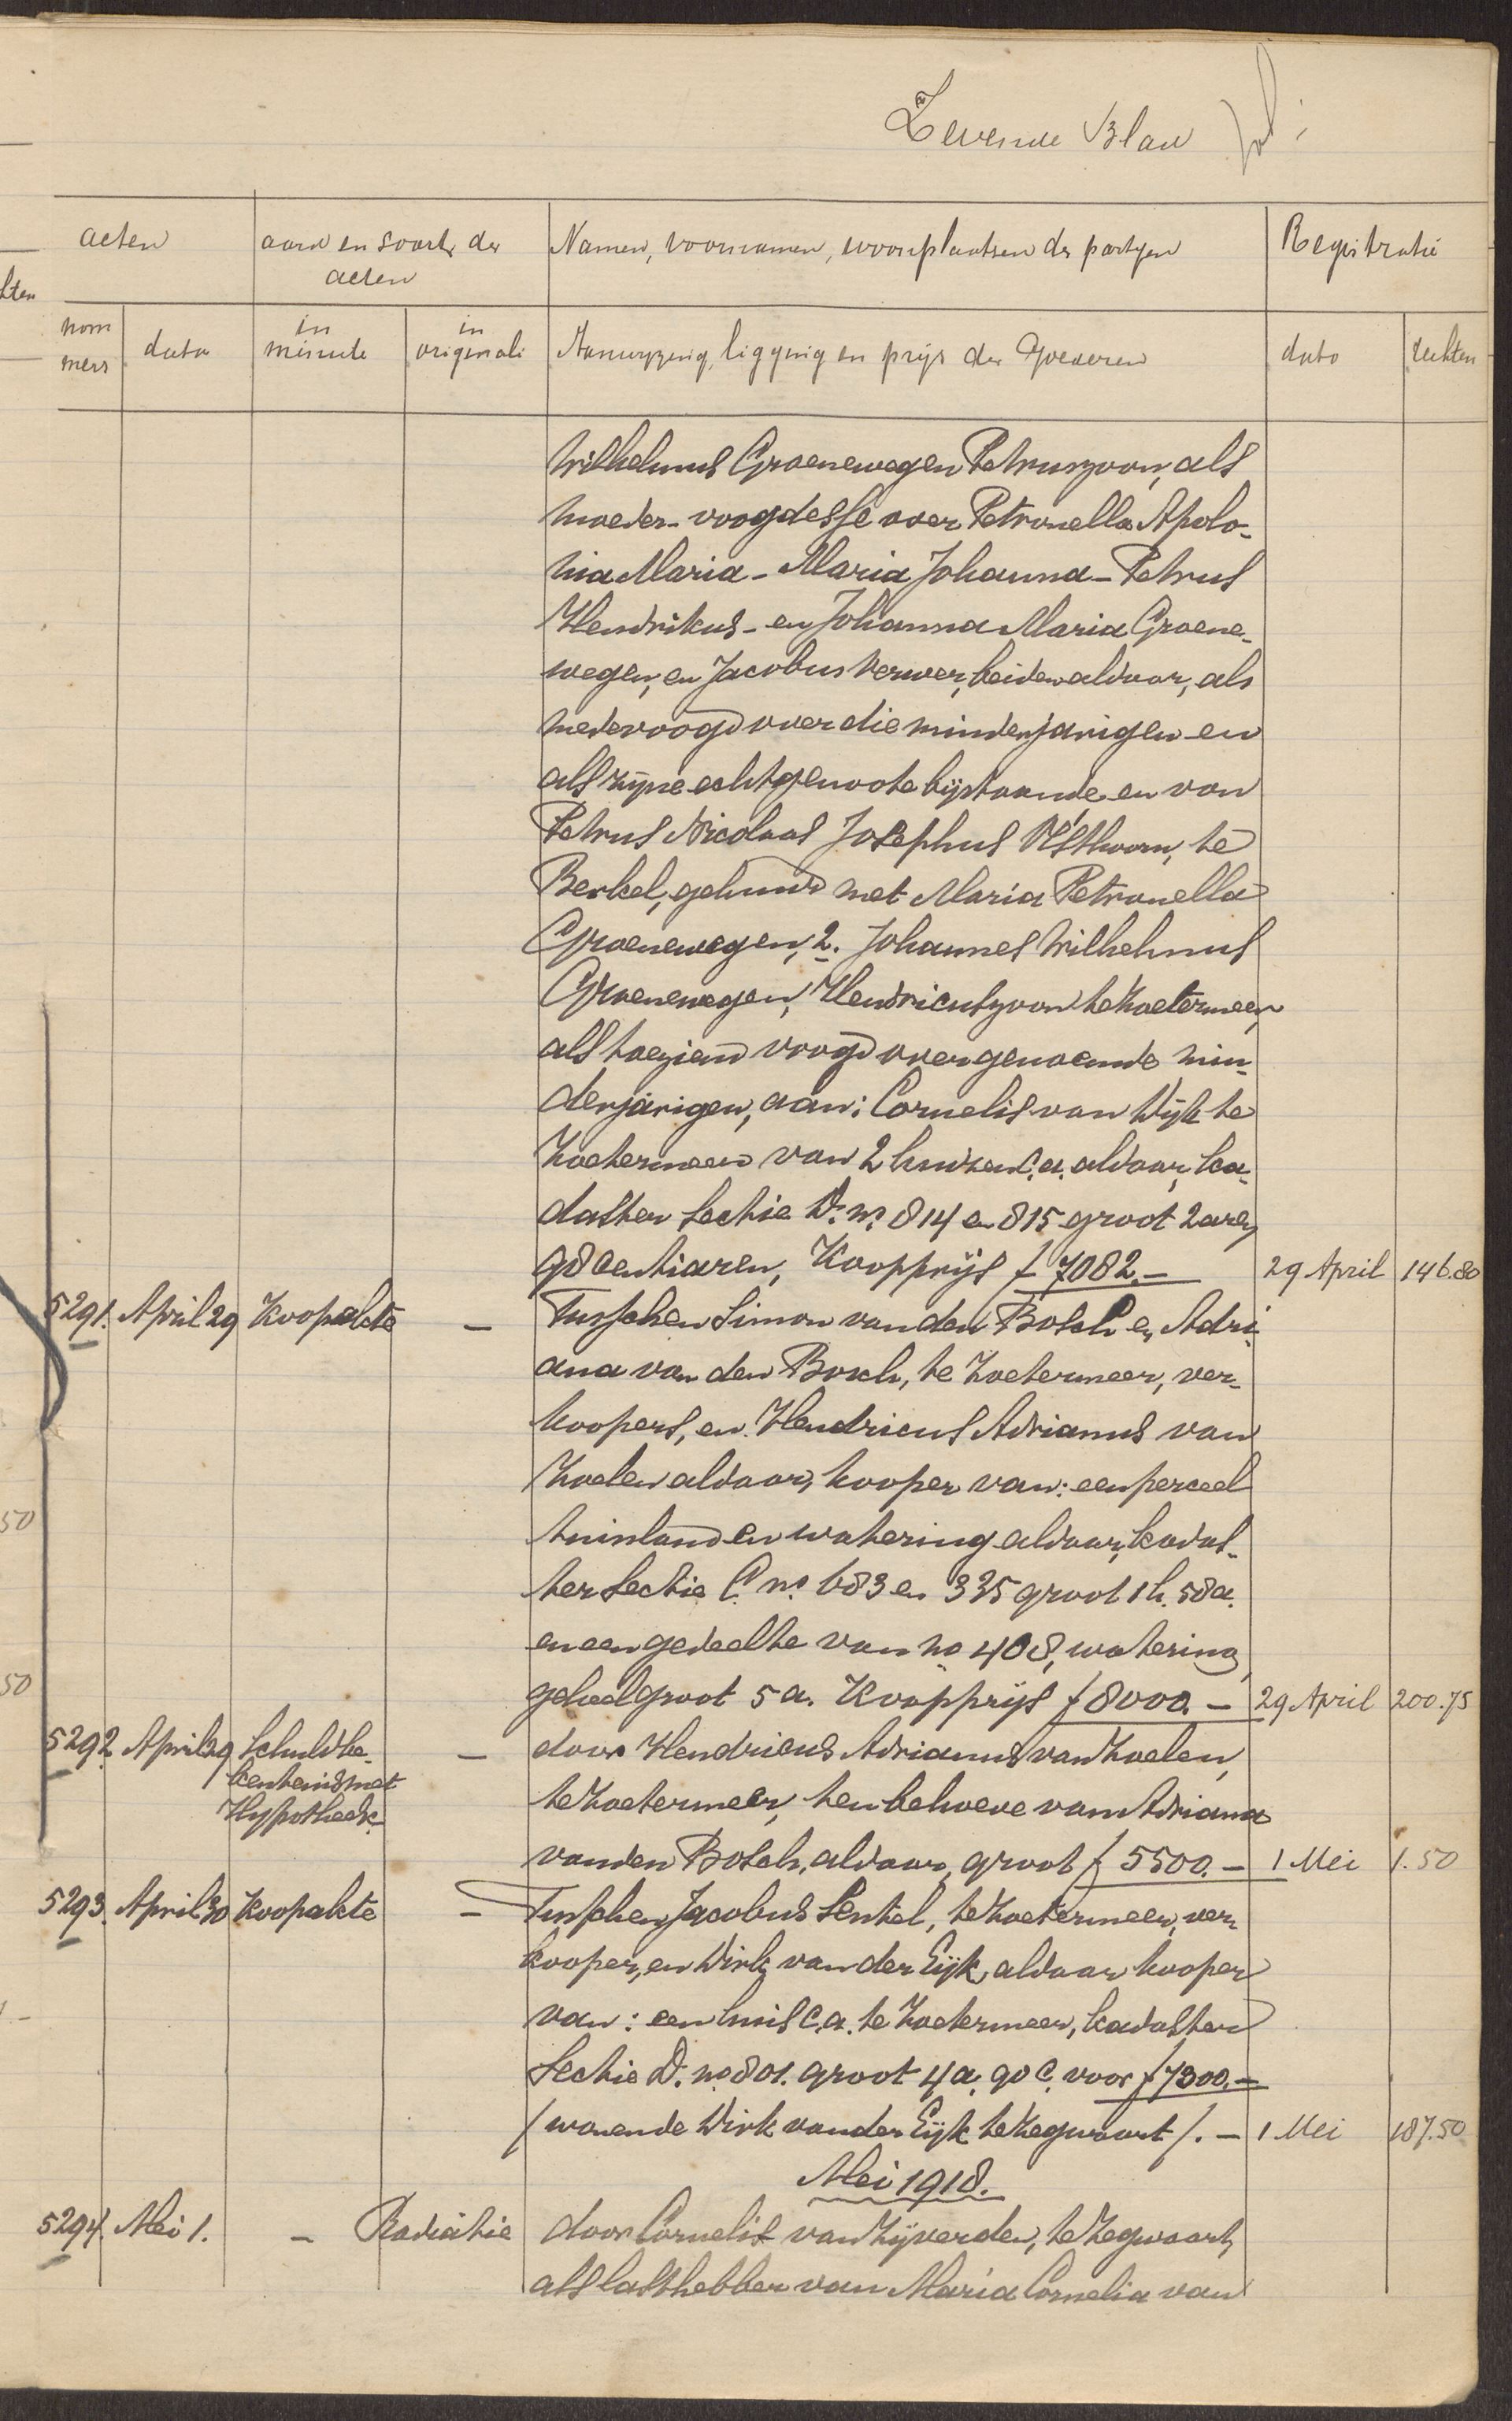 Zevende Blad
acten aard en soort der acten Namen, voornamen, woonplaatsen der partijen Registratie
nommers data in minute in originali Aanwyzing, ligging en prijs der Goederen dato rechten
Wilhelmus Groenewegen Petruszoon, als
moeder-voogdesse over Petronella Apolo-
nia Maria - Maria Johanna - Petrus
Hendrikus - en Johanna Maria Groene-
wegen, en Jacobus Verwer, beiden aldaar, als
medevoogd over die minderjarigen en
als zijne echtgenoote bijstaande en van
Petrus Nicolaas Josephus
Berkel, gehuwd met Maria Petronella
Groenewegen, 2. Johannes Wilhelmus
Groenewegen, Hendricuszoon te Zoetermeer,
als toeziend voogd over genoemde min-
derjarigen, aan: Cornelis van Wijk te
Zoetermeer van 2 huizen c.a. aldaar, ka-
daster Sectie D. no. 814 en 815 groot 2 aren
98 centiaren, Koopprijs f 7082.- 29 April 146.80
5291. April 29 Koopakte - Tusschen Simon van den Bosch en Adri-
ana van den Bosch, te Zoetermeer, ver-
koopers, en Hendricus Adrianus van
Zoelen aldaar, kooper van: een perceel
tuinland en watering aldaar, kadas-
ter Sectie C. no. 683 en 335 groot 1 h. 58 a.
en een gedeelte van no 408, watering,
geheel groot 5 a. Koopprijs f 8000.- 29 April 200.75
5292 April 29 Schuldbe- - door Hendricus Adrianus van Zoelen,
kentenis met
Hypotheek te Zoetermeer, ten behoeve van Adriana
van den Bosch, aldaar, groot f 5500.- 1 Mei 1.50
5293. April 30 Koopakte - Tusschen Jacobus Sentel, te Zoetermeer, ver-
kooper, en Dirk van der Eijk, aldaar kooper
van: een huis c.a. te Zoetermeer, kadaster
Sectie D. no 801. groot 4 a. 90 c. voor f 7300.-
(wonende Dirk van der Eijk te Zegwaart). - 1 Mei 187.50
Mei 1918.
5294. Mei 1. - Radiatie door Cornelis van Zijverden, te Zegwaart,
als lasthebber van Maria Cornelia van